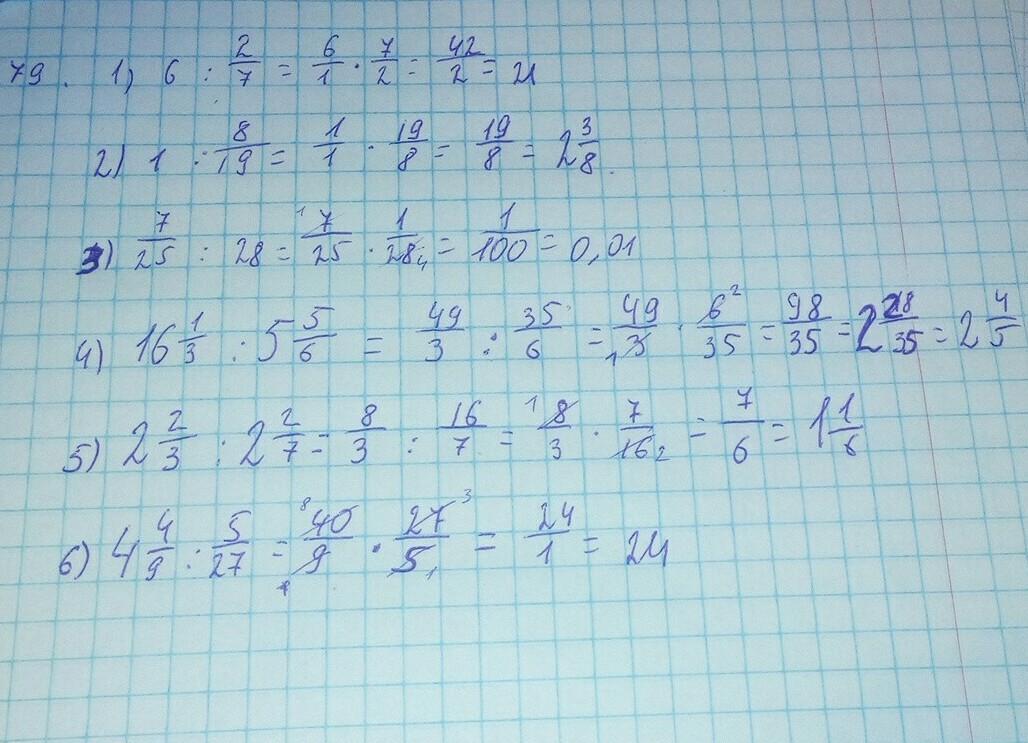 79. 1) 6 : 2/7 = 6/1 · 7/2 = 42/2 = 21
2) 1 : 8/19 = 1/1 · 19/8 = 19/8 = 2 3/8.
3) 7/25 : 28 = 1 7/25 · 1/28 4 = 1/100 = 0,01
4) 16 1/3 : 5 5/6 = 49/3 : 35/6 = 49/3 1 · 6 2/35 = 98/35 = 2 28/35 = 2 4/5
5) 2 2/3 : 2 2/7 = 8/3 : 16/7 = 1 8/3 · 7/16 2 = 7/6 = 1 1/6
6) 4 4/9 : 5/27 = 8 40/9 1 · 27 3/5 1 = 24/1 = 24